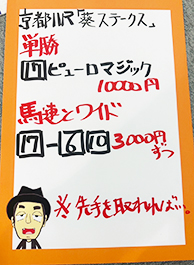 京都11R「葵ステークス」
単勝
17 ピューロマジック
10000円
馬連とワイド
17-16,10 3000円
ずつ
※先手を取れれば…。